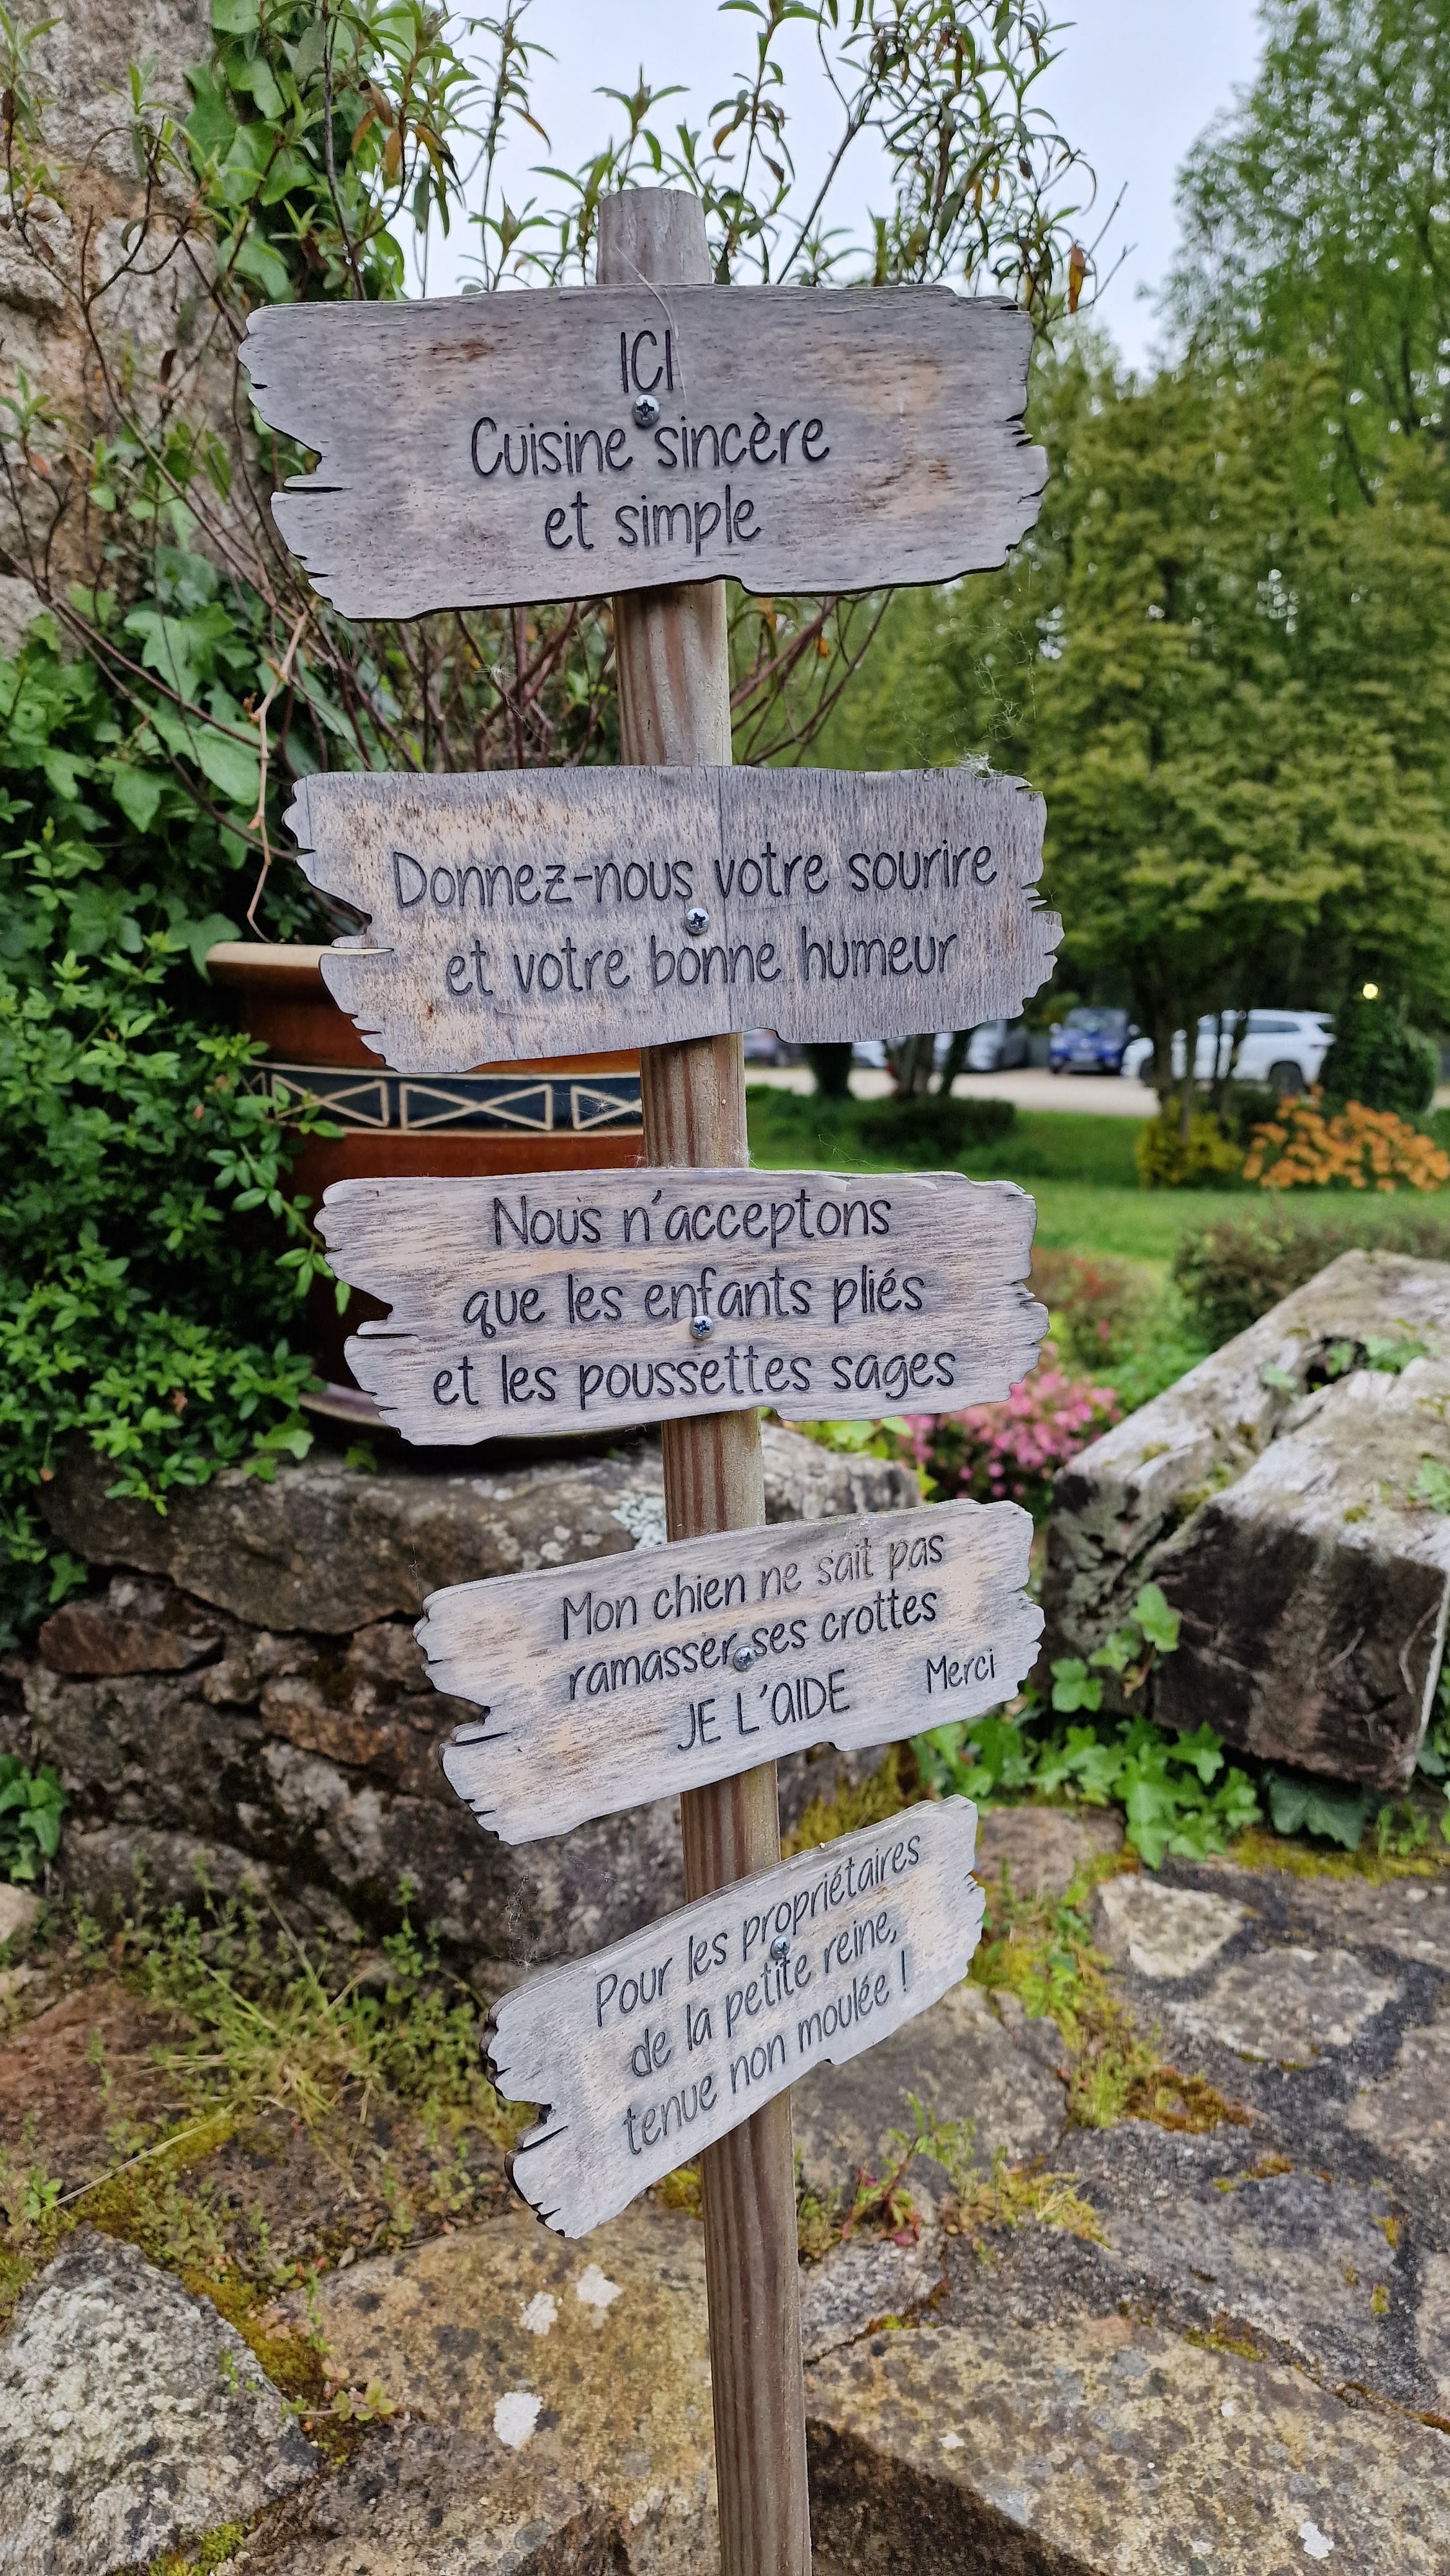 ICI
Cuisine sincère
et simple
Donnez-nous votre sourire
et votre bonne humeur
Nous n'acceptons
que les enfants pliés
et les poussettes sages
Mon chien ne sait pas
ramasser ses crottes
JE L'AIDE Merci
Pour les propriétaires
de la petite reine,
tenue non moulée !